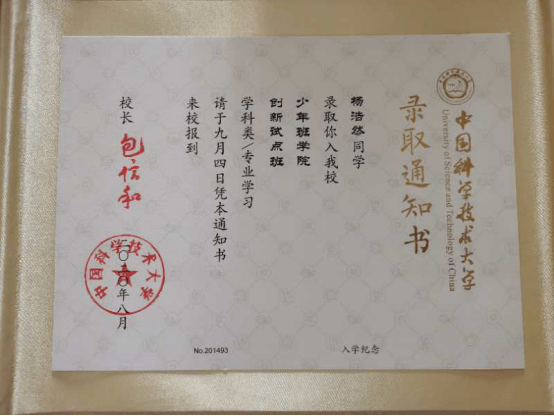 中国科学技术大学
University of Science and Technology of China
录取通知书
杨浩然同学
录取你入我校
少年班学院
创新试点班
学科类/专业学习
请于九月四日凭本通知书
来校报到
校长 包信和
二〇二〇年八月
中国科学技术大学
No.201493
入学纪念